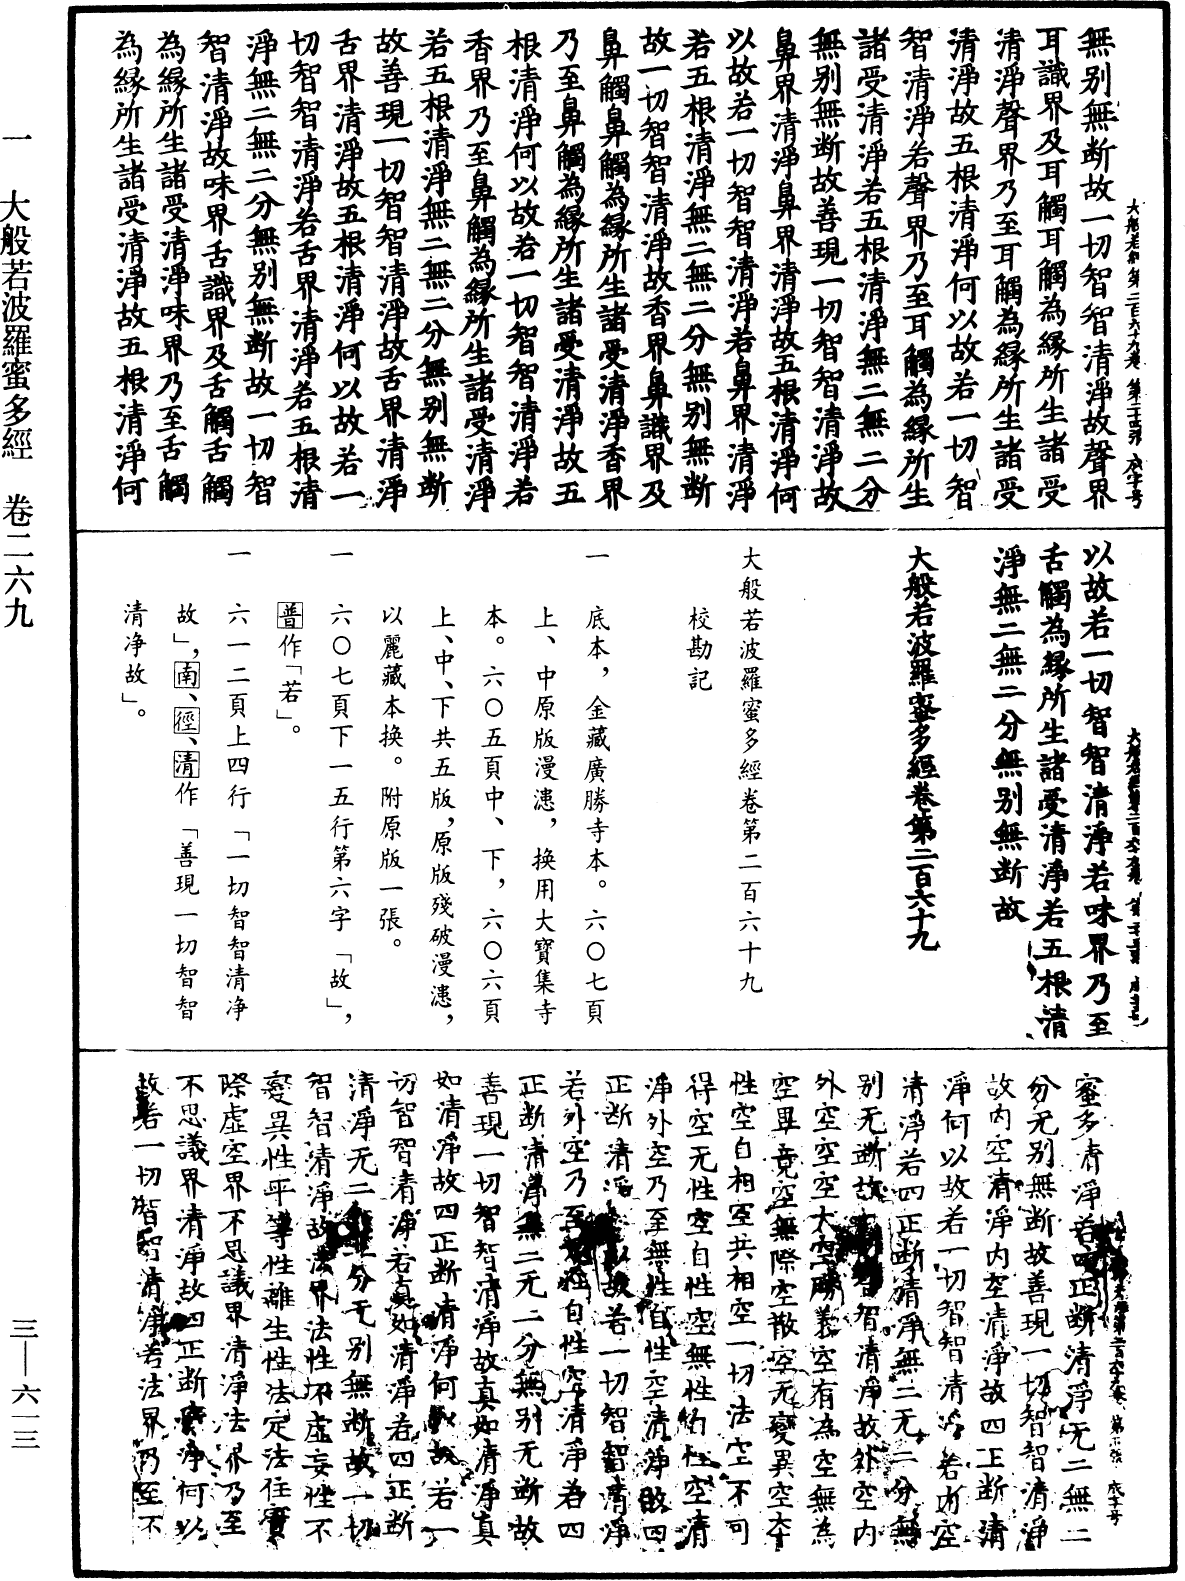 無別無斷故一切智智清淨故聲界
耳識界及耳觸耳觸為緣所生諸受
清淨聲界乃至耳觸為緣所生諸受
清淨故五根清淨何以故若一切智
智清淨若聲界乃至耳觸為緣所生
諸受清淨若五根清淨無二無二分
無別無斷故善現一切智智清淨故
鼻界清淨鼻界清淨故五根清淨何
以故若一切智智清淨若鼻界清淨
若五根清淨無二無二分無別無斷
故一切智智清淨故香界鼻識界及
鼻觸鼻觸為緣所生諸受清淨香界
乃至鼻觸為緣所生諸受清淨故五
根清淨何以故若一切智智清淨若
香界乃至鼻觸為緣所生諸受清淨
若五根清淨無二無二分無別無斷
故善現一切智智清淨故舌界清淨
舌界清淨故五根清淨何以故若一
切智智清淨若舌界清淨若五根清
淨無二無二分無別無斷故一切智
智清淨故味界舌識界及舌觸舌觸
為緣所生諸受清淨味界乃至舌觸
為緣所生諸受清淨故五根清淨何
以故若一切智智清淨若味界乃至
舌觸為緣所生諸受清淨若五根清
淨無二無二分無別無斷故
大般若波羅蜜多經卷第二百六十九
大般若波羅蜜多經卷第二百六十九
校勘記
一 底本，金藏廣勝寺本。六〇七頁
上、中原版漫漶，換用大寶集寺
本。六〇五頁中、下，六〇六頁
上、中、下共五版，原版殘破漫漶，
以麗藏本換。附原版一張。
一 六〇七頁下一五行第六字「故」，
普作「若」。
一 六一二頁上四行「一切智智清净
故」，南、徑、清作「善現一切智智
清净故」。
蜜多清淨若四正斷清淨无二無二
分无別無斷故善現一切智智清淨
故內空清淨內空清淨故四正斷清
淨何以故若一切智智清淨若內空
清淨若四正斷清淨無二无二分無
別无斷故 智智清淨故外空內
外空空空大空勝義空有為空無為
空畢竟空無際空散空无變異空本
性空自相空共相空一切法空不可
得空无性空自性空無性自性空清
淨外空乃至無性自性空清淨故四
正斷清淨 以故若一切智智清淨
若外空乃至無性自性空清淨若四
正斷清淨無二无二分無別无斷故
善現一切智智清淨故真如清淨真
如清淨故四正斷清淨何以故若一
切智智清淨若真如清淨若四正斷
清淨无二 分无別無斷故一切
智智清淨故法界法性不虛妄性不
變異性平等性離生性法定法住實
際虛空界不思議界清淨法界乃至
不思議界清淨故四正斷清淨何以
故若一切智智清淨若法界乃至不
一 大般若波羅蜜多經 卷二六九
三—六一三